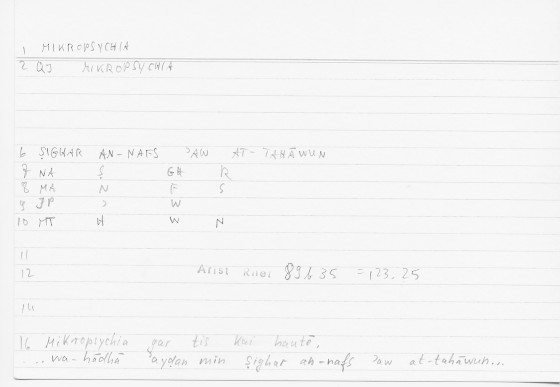 1 MIKROPSYCHIA
2 QJ MIKROPSYCHIA
6 ṢIGHAR AN-NAFS ʾAW AT-TAHĀWUN
7 NA Ṣ GH R
8 MA N F S
9 JP ʾ W
10 MT H W N
11
12 Arist Rhet 89b35 = 173.25
14
16 Mikropsychia gar tis kai hautē.
... wa-hādhā ʾayḍan min ṣighar an-nafs ʾaw at-tahāwun...